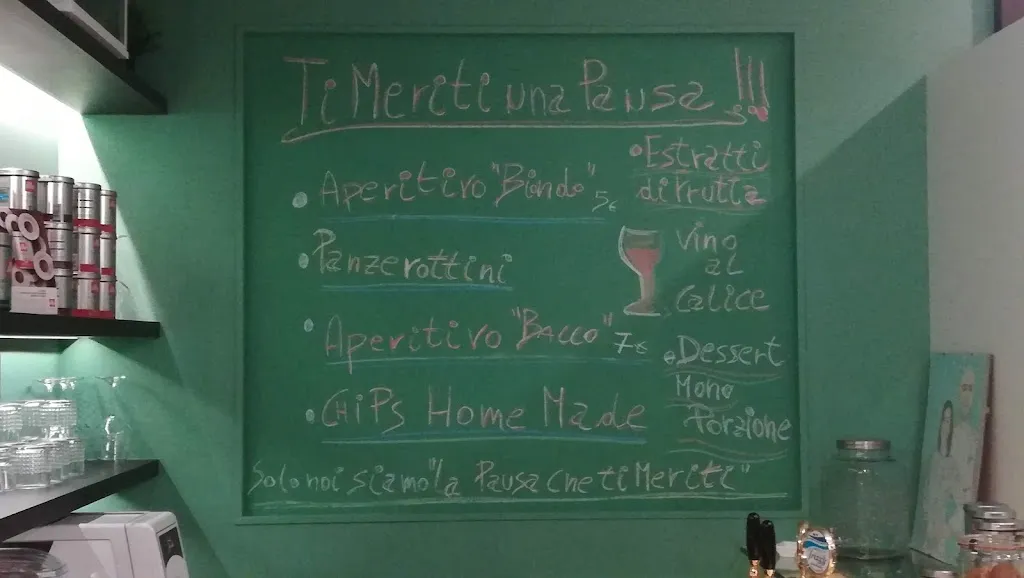 Ti Meriti una Pausa !!!
• Aperitivo "Biondo" 5€
• Panzerottini
• Aperitivo "BACCO" 7€
• CHiPs Home Made
• Estratti
di frutta
Vino
al
Calice
• Dessert
Mono
Porzione
Solo noi siamo "la Pausa che ti Meriti"